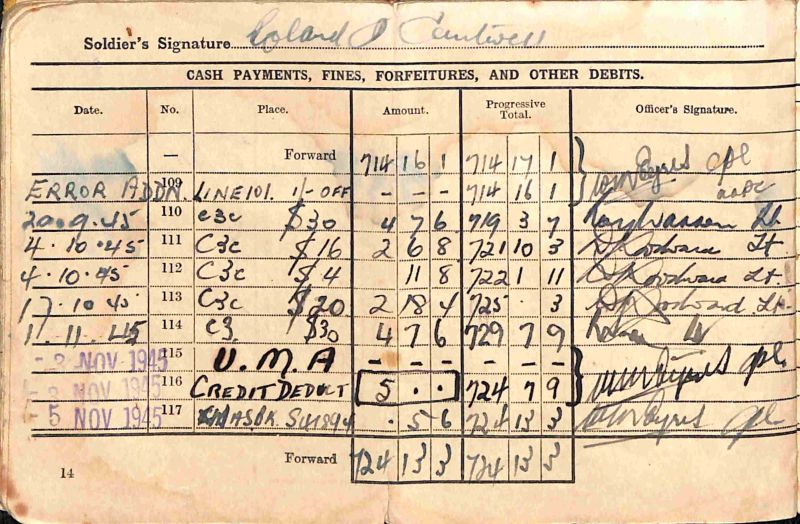 Soldier's Signature Roland J Cantwell
CASH PAYMENTS, FINES, FORFEITURES, AND OTHER DEBITS.
Date. No. Place. Amount. Progressive Total. Officer's Signature.
— Forward 714 16 1 714 17 1
ERROR ADDN. 109 LINE 101. 1/- OFF - - - 714 16 1
20.9.45 110 C3C $30 4 7 6 719 3 7 Lt.
4.10.45 111 C3C $16 2 6 8 721 10 3 Lt
4.10.45 112 C3C $4 11 8 722 1 11 Lt.
17.10.45 113 C3C $20 2 18 4 725 . 3 Lt.
1.11.45 114 C3. $30 4 7 6 729 7 9
- 3 NOV 1945 115 U.M.A - - - - - -
3 NOV 1945 116 CREDIT DEDUCT 5 . . 724 7 9 Cpl
- 5 NOV 1945 117 . 5 6 724 13 3 Cpl
Forward 724 13 3 724 13 3
14